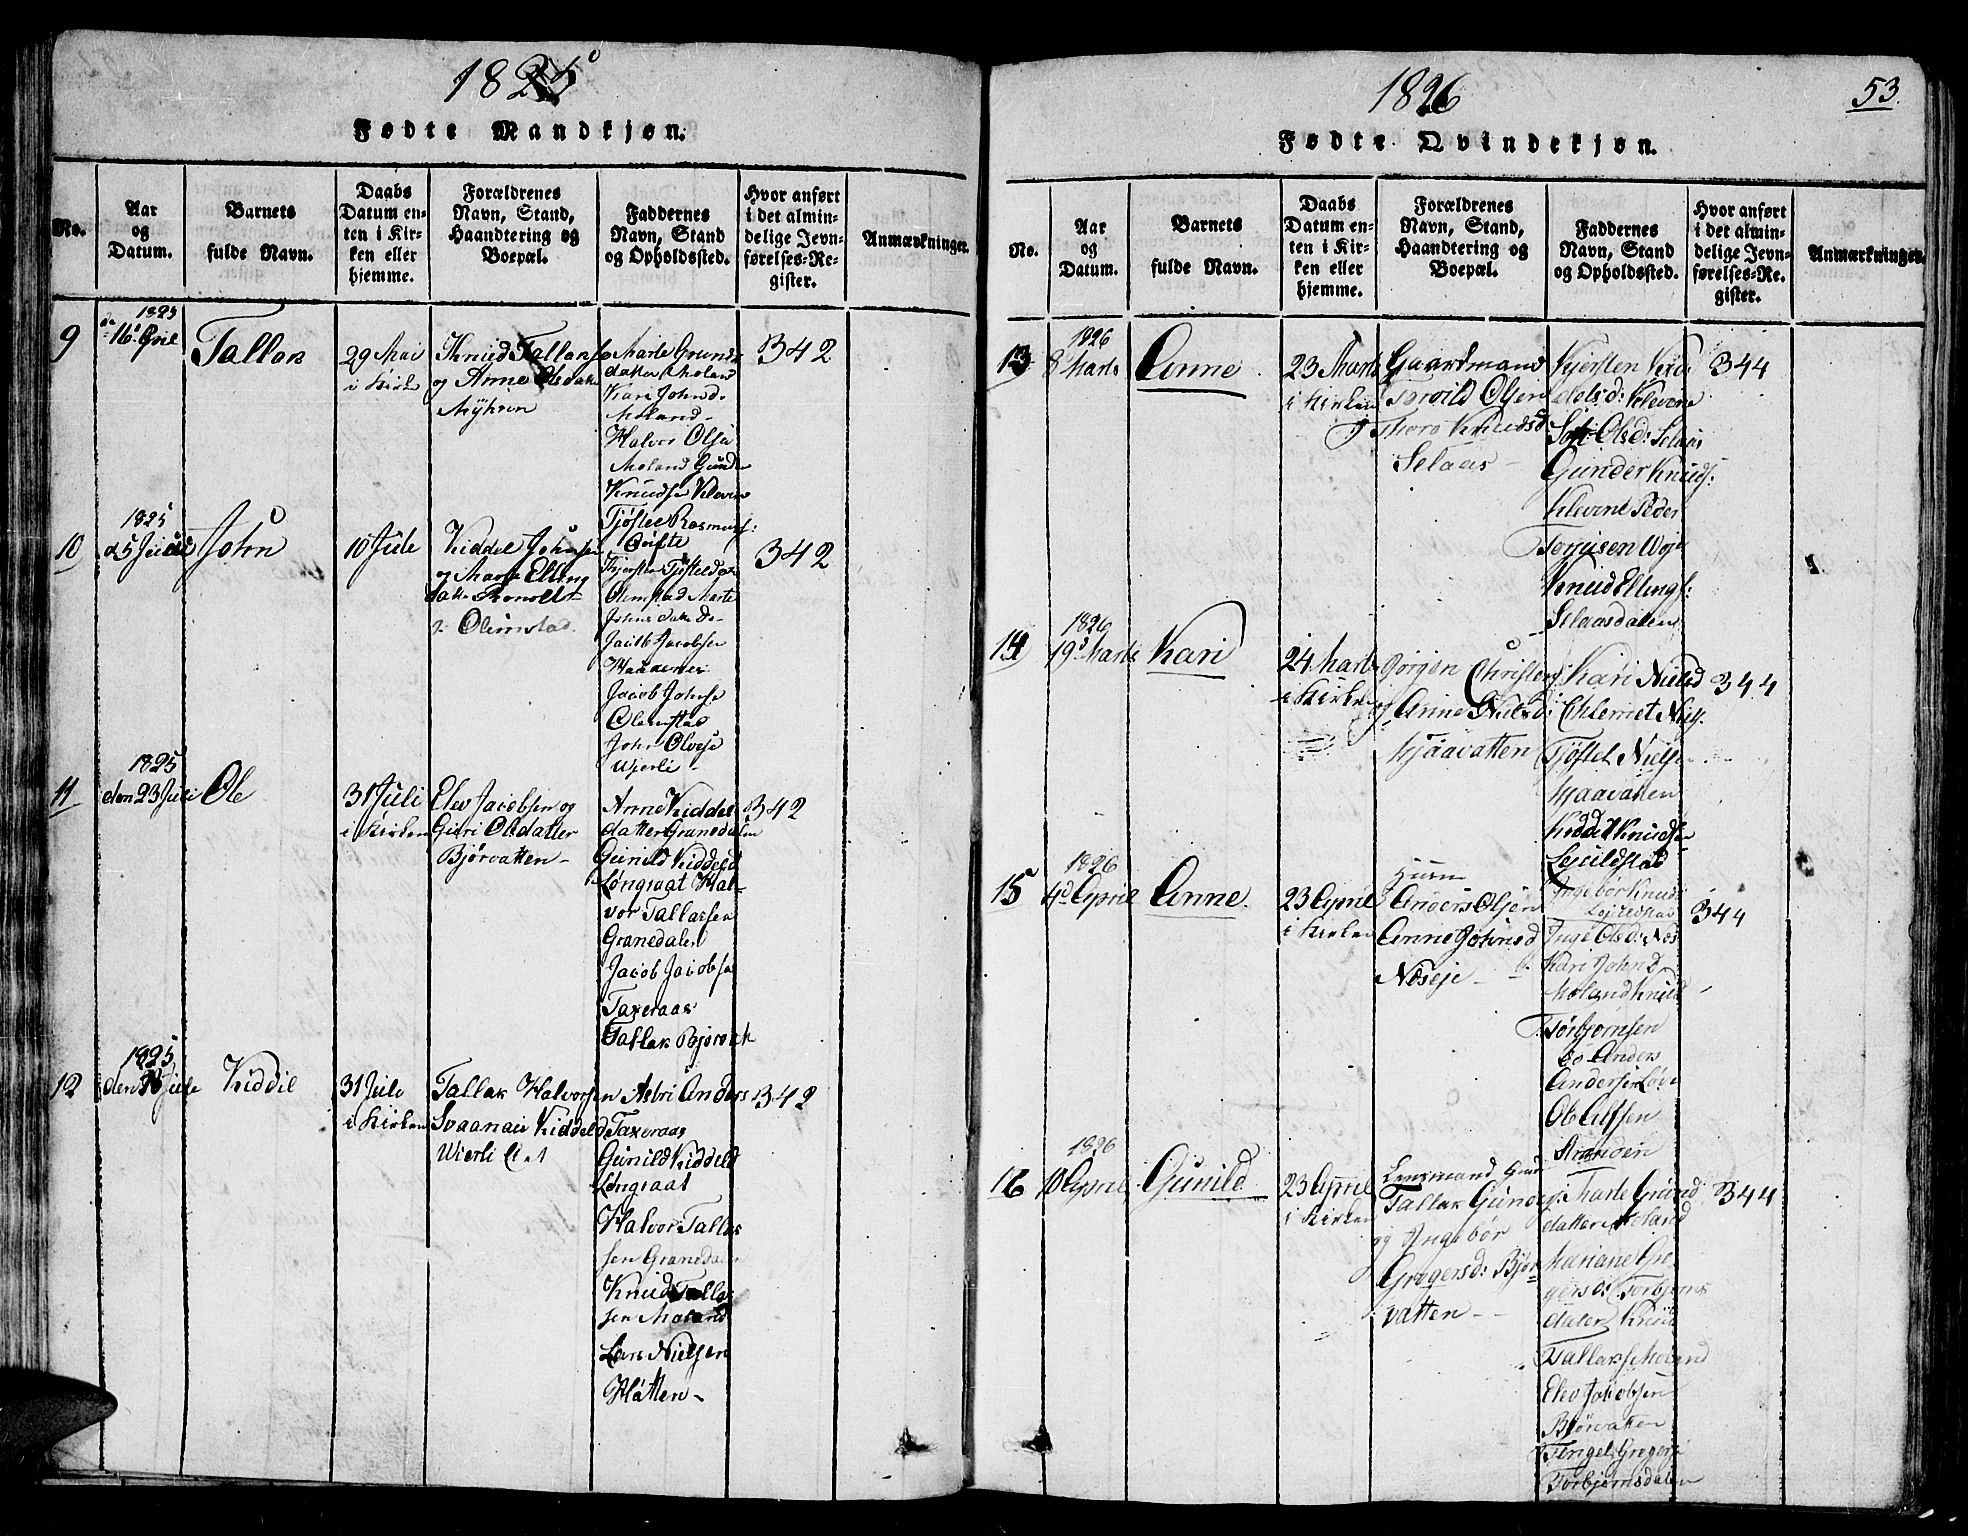 1825
Fødte Mandkjøn.
No.
Aar
og
Datum.
Barnets
fulde Navn.
Daabs
Datum en-
ten i Kir-
ken eller
hjemme.
Forældrenes
Navn, Stand,
Haandtering og
Boepæl.
Faddernes
Navn, Stand
og Opholdssted.
Hvor anført
i det almin-
delige Jevn-
førelses-Re-
gister.
Anmærkninger.
9
1825
16
Tallak
29 Mai
i Kirke
Knud Tallaks
og Anne Olsdatter
Myhren
Marte Gunds
datter Moland
Kari Johnd.
Moland
Halvor Olse
Moland Gunde
Knudsen Kleven
Tjøstel Rasmus:
342
10
1825
John
10 Jule
Kiddel Johnse
og Marte Elling
Olimstad
Kjersten Tjøstelds
Olimstad Marte
Johnsdatter Do
Jacob Jacobsen
Jacob Johnse
Olimstad
John Olvse
Wierli
342
11
1825
den 23 Juli
Ole
31 Juli
i Kirken
Elev Jacobsen og
Guri Olsdatter
Bjørvatten
Anne Kiddel
datter Granedalen
Gunild Kiddelsd
Løngraat Hal-
vor Tallaksen
Granedalen
Jacob Jacobse
Taxeraas
Tallak Bjørvat
342
12
1825
den Jule
Kiddil
31 Jule
i Kirken
Tallak Halvorsen
Svaanau Kiddelsd
Wierli Eiet
Astri Anders
Taxeraas
Gunild Kiddelsd
Løngraat
Halvor Tallak
sen Granedalen
Knud Talla
sen Moland
Lars Nielsen
Hatten
342
1826
53.
Fødte Qvindekjøn.
No.
Aar
og
Datum.
Barnets
fulde Navn.
Daabs
Datum en-
ten i Kir-
ken eller
hjemme.
Forældrenes
Navn, Stand,
Haandtering og
Boepæl.
Faddernes
Navn, Stand
og Opholdssted.
Hvor anført
i det almin-
delige Jevn-
førelses-Re-
gister.
Anmærkninger.
13
1826
8 Marts
Anne
23 Marts
i Kirken
Gaardmand
Torvild Olsen
Thora Knudsd
Selaas
Kjersten Kid
delsd: Klevene
Olsd: Selaas
Gunder Knuds:
Klevene Peder
Terjusen Woje
Knud Ellings:
Selaasdalen
344
14
1826
19 Marts
Kari
24 Marts
i Kirken
Jørgen Christens
og Anne Nielsd:
Hjaavatten
Kari Nielsd
Chlemet Niels
Tjøstel Nielse
Hjaavatten
Kiddel Knudse
Lejuldstad
Ingebør Knuds
Lejuldstad
344
15
1826
4d April
Anne
23 April
i Kirken
Huusm
Anders Olsen
Anne Johnsd
Næseje
Inge Olsd: Næs
Kari Johnd
Moland Knud
Torbjørnsen
Do Anders
Andersen Løve
Ole Alfsen
Stranden
344
16
1826
10 April
Gunild
23 April
i Kirken
Lensmand
Tallak Gunders
og Ingebør
Gregersd: Bjør
vatten
Marte Gund
datter Moland
Mariane Gre
gersd: Torbjørns
dalen Knud
Tallaks Moland
Elev Jacobsen
Bjørvatten
Tengel Gregers
Torbjørnsdalen
344